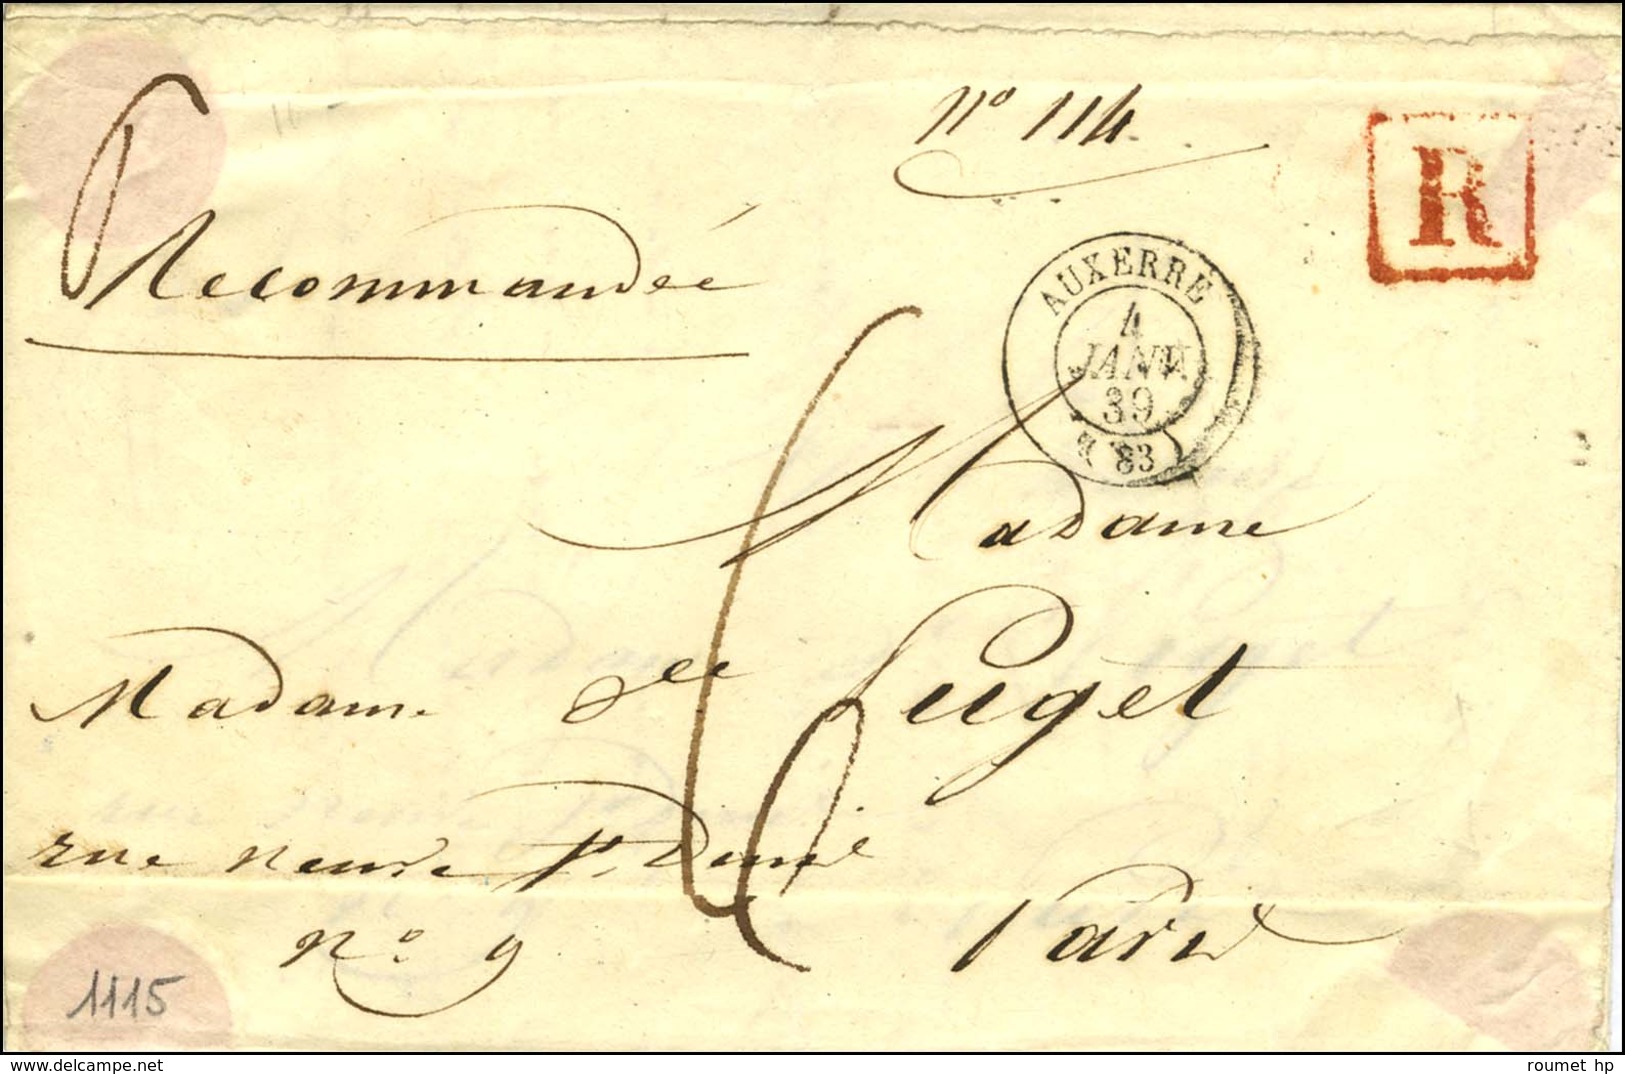 nº 114
R
Recommandée
AUXERRE
4
JANV.
39
(83)
Madame
Madame de Puget
rue neuve St. Denis
nº. 9 Paris
1115
roumet hp